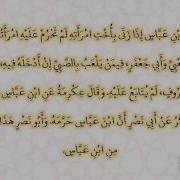 ابْنِ عَبَّاسٍ إِذَا زَنَى بِأُخْتِ امْرَأَتِهِ لَمْ تَحْرُمْ عَلَيْهِ امْرَأَتُ
وَأَبِي جَعْفَرٍ، فِيمَنْ يَلْعَبُ بِالصَّبِيِّ إِنْ أَدْخَلَهُ فِيهِ،
لَمْ يُتَابَعْ عَلَيْهِ وَقَالَ عِكْرِمَةُ عَنِ ابْنِ عَبَّاسٍ
عَنْ أَبِي نَصْرٍ أَنَّ ابْنَ عَبَّاسٍ حَرَّمَهُ وَأَبُو نَصْرٍ هَذَا
مِنِ ابْنِ عَبَّاسٍ.